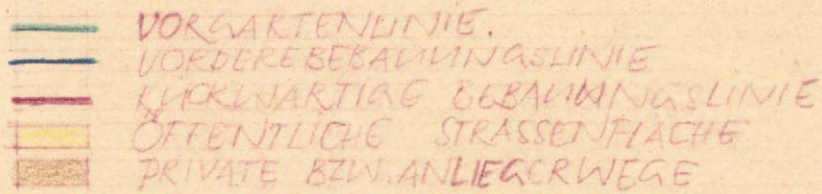 VORGARTENLINIE.
VORDERE BEBAUUNGSLINIE
RÜCKWÄRTIGE BEBAUUNGSLINIE
ÖFFENTLICHE STRASSENFLÄCHE
PRIVATE BZW. ANLIEGERWEGE